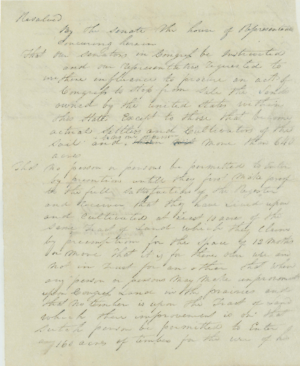 Resolved
By the Senate the house of Representatives
Concurring herein
That our Senators in Congress be Instructed
and our representatives requested to
use there influences to procure an act of
Congress to stop from sale the Lands
owned by the united States within
this State Except to those that become
actual Settlers and Cultivators of the
Soil and more than 640
acres
That no person or persons be permitted to enter
by preemption until they first make proof
to the full satisfaction of the Register
and Receiver that they have lived upon
and Cultivated at least acres of the
same Tract of Land which they Claim
by preemption for the space of 12 months
or more that it is for there own use and
not in trust for an other that when
any person or persons may make improvement
on Congress Land with the prairies and
that no timber is upon the Tract of Land
which there improvement is on that
such person be permitted to Enter
any 160 acres of timber for the use of